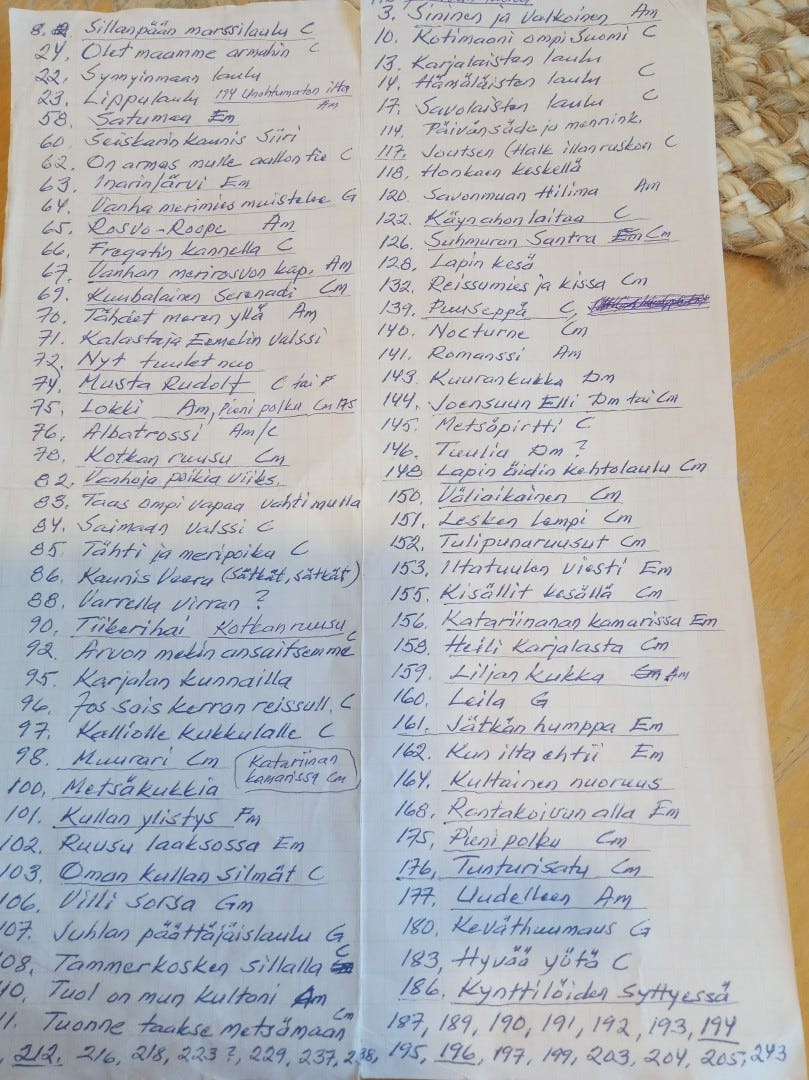 8. Sillanpään marssilaulu C
24. Olet maamme armahin C
22. Synnyinmaan laulu
23. Lippulaulu 194 Unohtumaton ilta Am
58. Satumaa Em
60. Seiskarin kaunis Siiri
62. On armas mulle aallon tie C
63. Inarinjärvi Em
64. Vanha merimies muistelee G
65. Rosvo-Roope Am
66. Fregatin kannella C
67. Vanhan merirosvon kap. Am
69. Kuubalainen Serenadi Cm
70. Tähdet meren yllä Am
71. Kalastaja Eemelin valssi
72. Nyt tuulet nuo
74. Musta Rudolf C tai F
75. Lokki Am, Pieni polku Cm 175
76. Albatrossi Am/C
78. Kotkan ruusu Cm
82. Vanhoja poikia viiks.
83. Taas ompi vapaa vahti mulla
84. Saimaan valssi C
85. Tähti ja meripoika C
86. Kaunis Veera (Sätkät, sätkät)
88. Varrella virran ?
90. Tiikerihai Kotkan ruusu
92. Arvon mekin ansaitsemme C
95. Karjalan kunnailla
96. Jos sais kerran reissull. C
97. Kalliolle kukkulalle C
98. Muurari Cm Katariinan kamarissa Cm
100. Metsäkukkia
101. Kullan ylistys Fm
102. Ruusu laaksossa Em
103. Oman kullan silmät C
106. Villi sorsa Gm
107. Juhlan päättäjäislaulu G
08. Tammerkosken sillalla C
10. Tuol on mun kultani Am
1. Tuonne taakse metsämaan Cm
, 212, 216, 218, 223?, 229, 237, 238,
3. Sininen ja Valkoinen Am
10. Kotimaani ompi Suomi C
13. Karjalaisten laulu
14. Hämäläisten laulu C
17. Savolaisten laulu C
114. Päivänsäde ja mennink.
117. Joutsen (Halk illan ruskon C
118. Honkain keskellä
120. Savonmuan Hilima Am
122. Käyn ahon laitaa C
126. Suhmuran Santra Cm
128. Lapin kesä
132. Reissumies ja kissa Cm
139. Puuseppä C,
140. Nocturne Cm
141. Romanssi Am
143. Kuurankukka Dm
144. Joensuun Elli Dm tai Cm
145. Metsäpirtti C
146. Tuulia Dm ?
148 Lapin äidin kehtolaulu Cm
150. Väliaikainen Cm
151. Lesken lempi Cm
152. Tulipunaruusut Cm
153. Iltatuulen viesti Em
155. Kisällit kesällä Cm
156. Katariinanan kamarissa Em
158. Heili Karjalasta Cm
159. Liljan kukka Am
160. Leila G
161. Jätkän humppa Em
162. Kun ilta ehtii Em
164. Kultainen nuoruus
168. Rantakoivun alla Em
175, Pieni polku Cm
176, Tunturisatu Cm
177. Uudelleen Am
180. Keväthuumaus G
183, Hyvää yötä C
186. Kynttilöiden syttyessä
187, 189, 190, 191, 192, 193, 194
195, 196, 197, 199, 203, 204, 205, 243